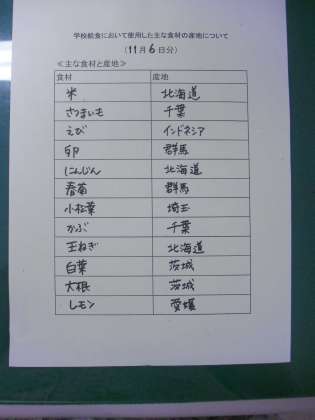 学校給食において使用した主な食材の産地について
(11月6日分)
≪主な食材と産地≫
食材 産地
米 北海道
さつまいも 千葉
えび インドネシア
卵 群馬
にんじん 北海道
春菊 群馬
小松菜 埼玉
かぶ 千葉
玉ねぎ 北海道
白菜 茨城
大根 茨城
レモン 愛媛